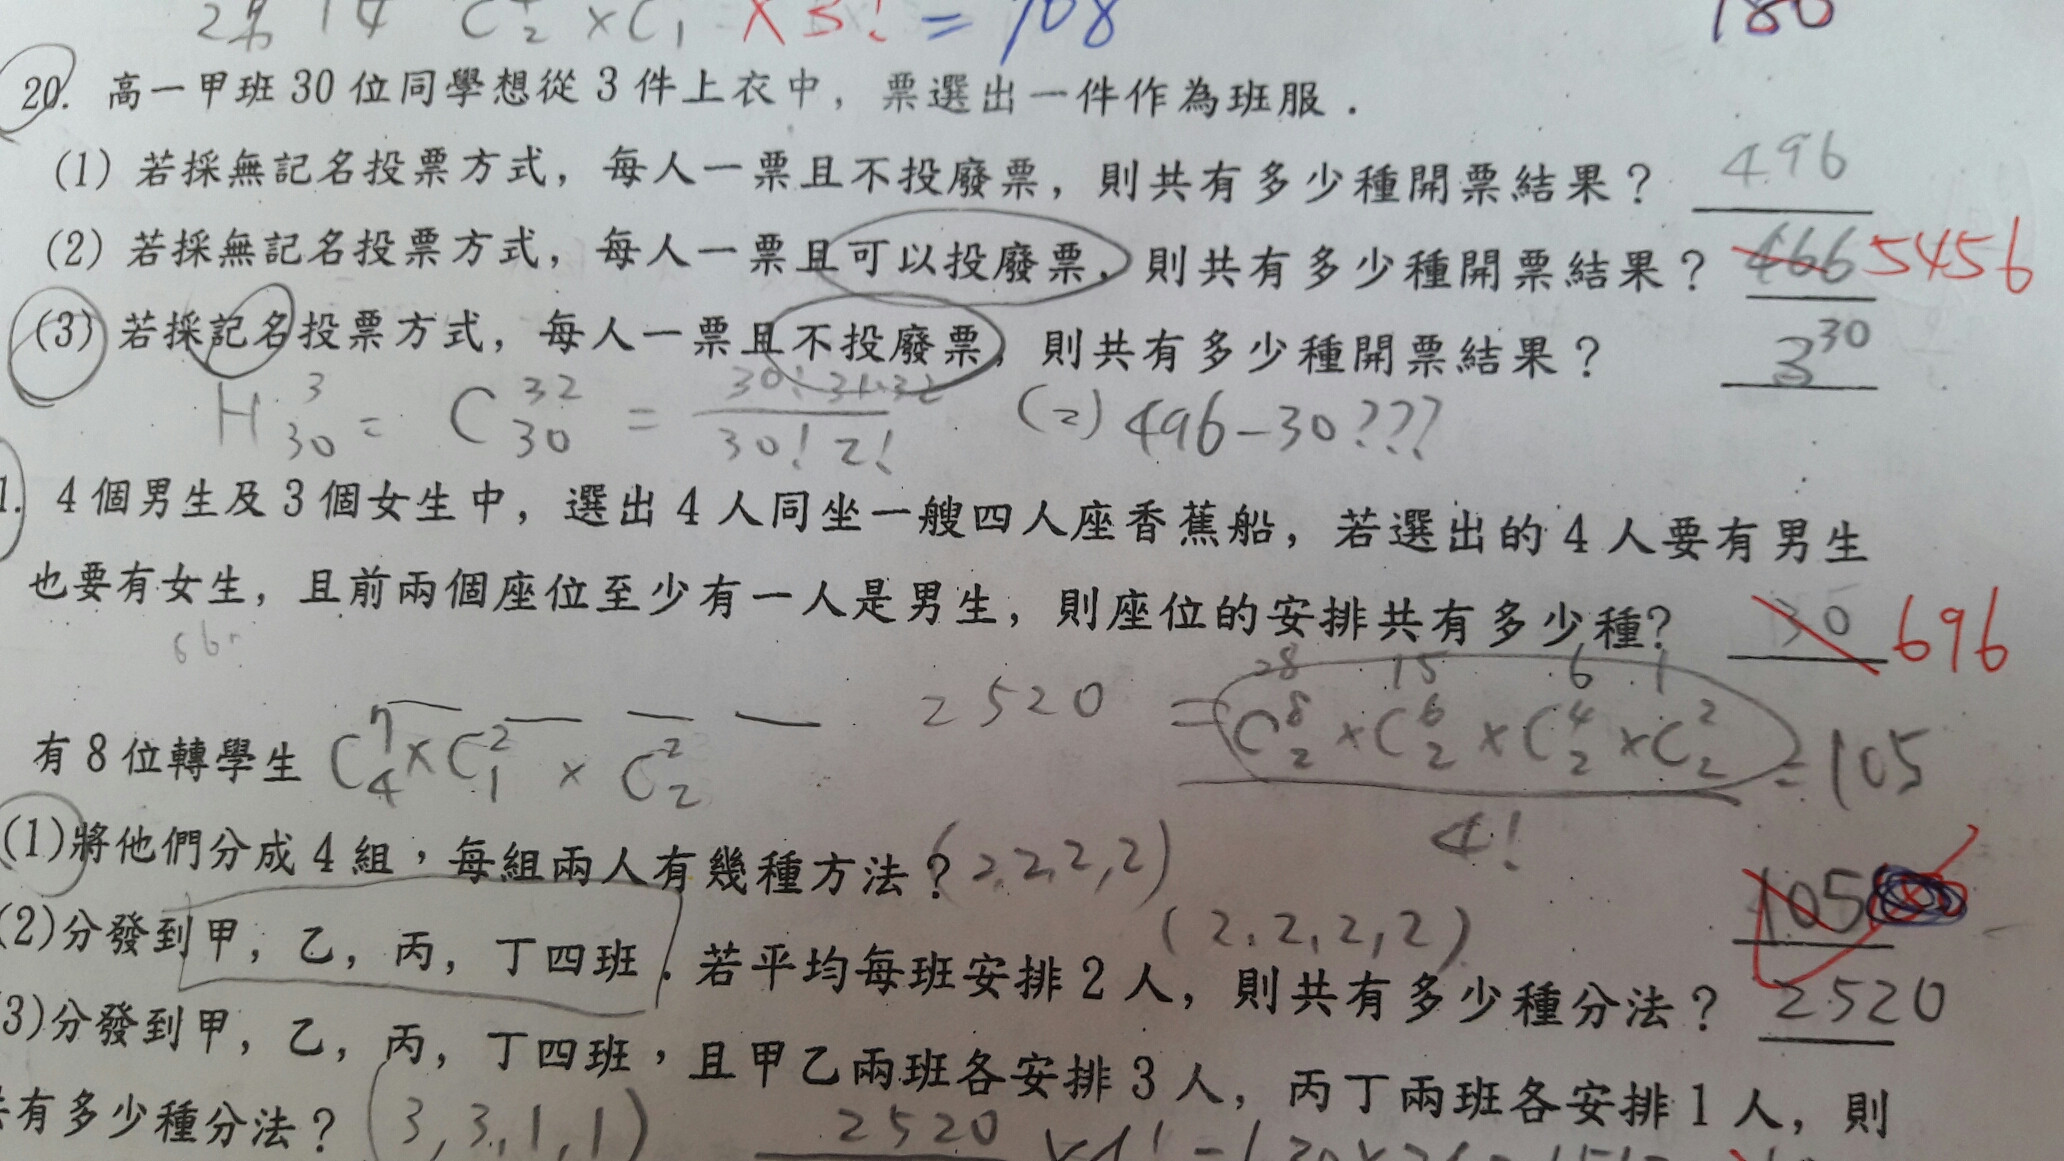 C₂ × C₁ × 3! = 108
180
20. 高一甲班 30 位同學想從 3 件上衣中，票選出一件作為班服．
(1) 若採無記名投票方式，每人一票且不投廢票，則共有多少種開票結果？ 496
(2) 若採無記名投票方式，每人一票且可以投廢票，則共有多少種開票結果？ 466 5456
(3) 若採記名投票方式，每人一票且不投廢票，則共有多少種開票結果？ 3³⁰
H³₃₀ = C³²₃₀ = 30! 31·32 / 30! 2! (2) 496-30???
1. 4 個男生及 3 個女生中，選出 4 人同坐一艘四人座香蕉船，若選出的 4 人要有男生
也要有女生，且前兩個座位至少有一人是男生，則座位的安排共有多少種? 30 696
28 15 6 1
2520 = C⁸₂ × C⁶₂ × C⁴₂ × C²₂ = 105
4!
有 8 位轉學生 C⁷₄ × C²₁ × C²₂
(1)將他們分成 4 組，每組兩人有幾種方法？(2,2,2,2) 105
(2)分發到甲，乙，丙，丁四班．若平均每班安排 2 人，則共有多少種分法？ 2520
(2,2,2,2)
3)分發到甲，乙，丙，丁四班，且甲乙兩班各安排 3 人，丙丁兩班各安排 1 人，則
有多少種分法？ (3,3,1,1) 2520